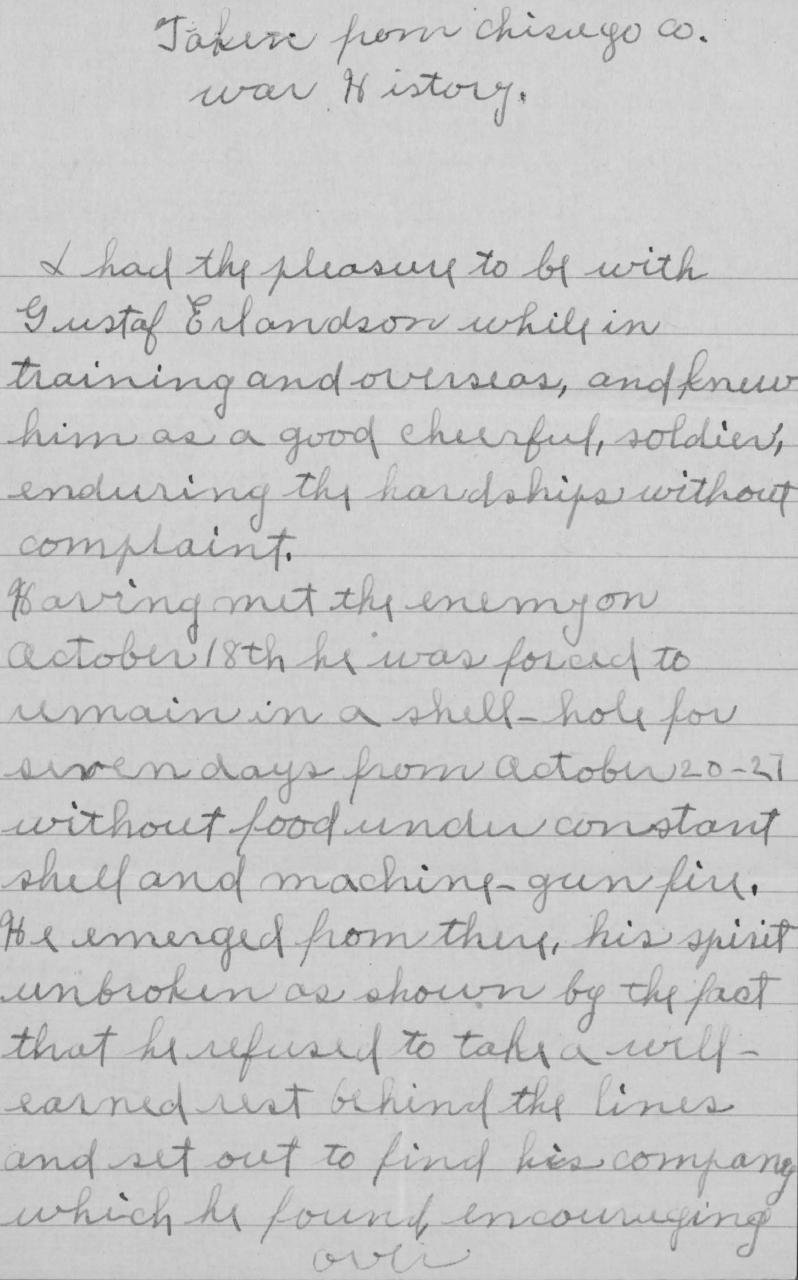 Taken from Chisago co.
war History.
I had the pleasure to be with
Gustaf Erlandson while in
training and overseas, and knew
him as a good cheerful, soldier,
enduring the hardships without
complaint.
Having met the enemy on
October 18th he was forced to
remain in a shell-hole for
seven days from October 20-27
without food under constant
shell and machine-gun fire.
He emerged from there, his spirit
unbroken as shown by the fact
that he refused to take a well-
earned rest behind the lines
and set out to find his company
which he found, encouraging
over